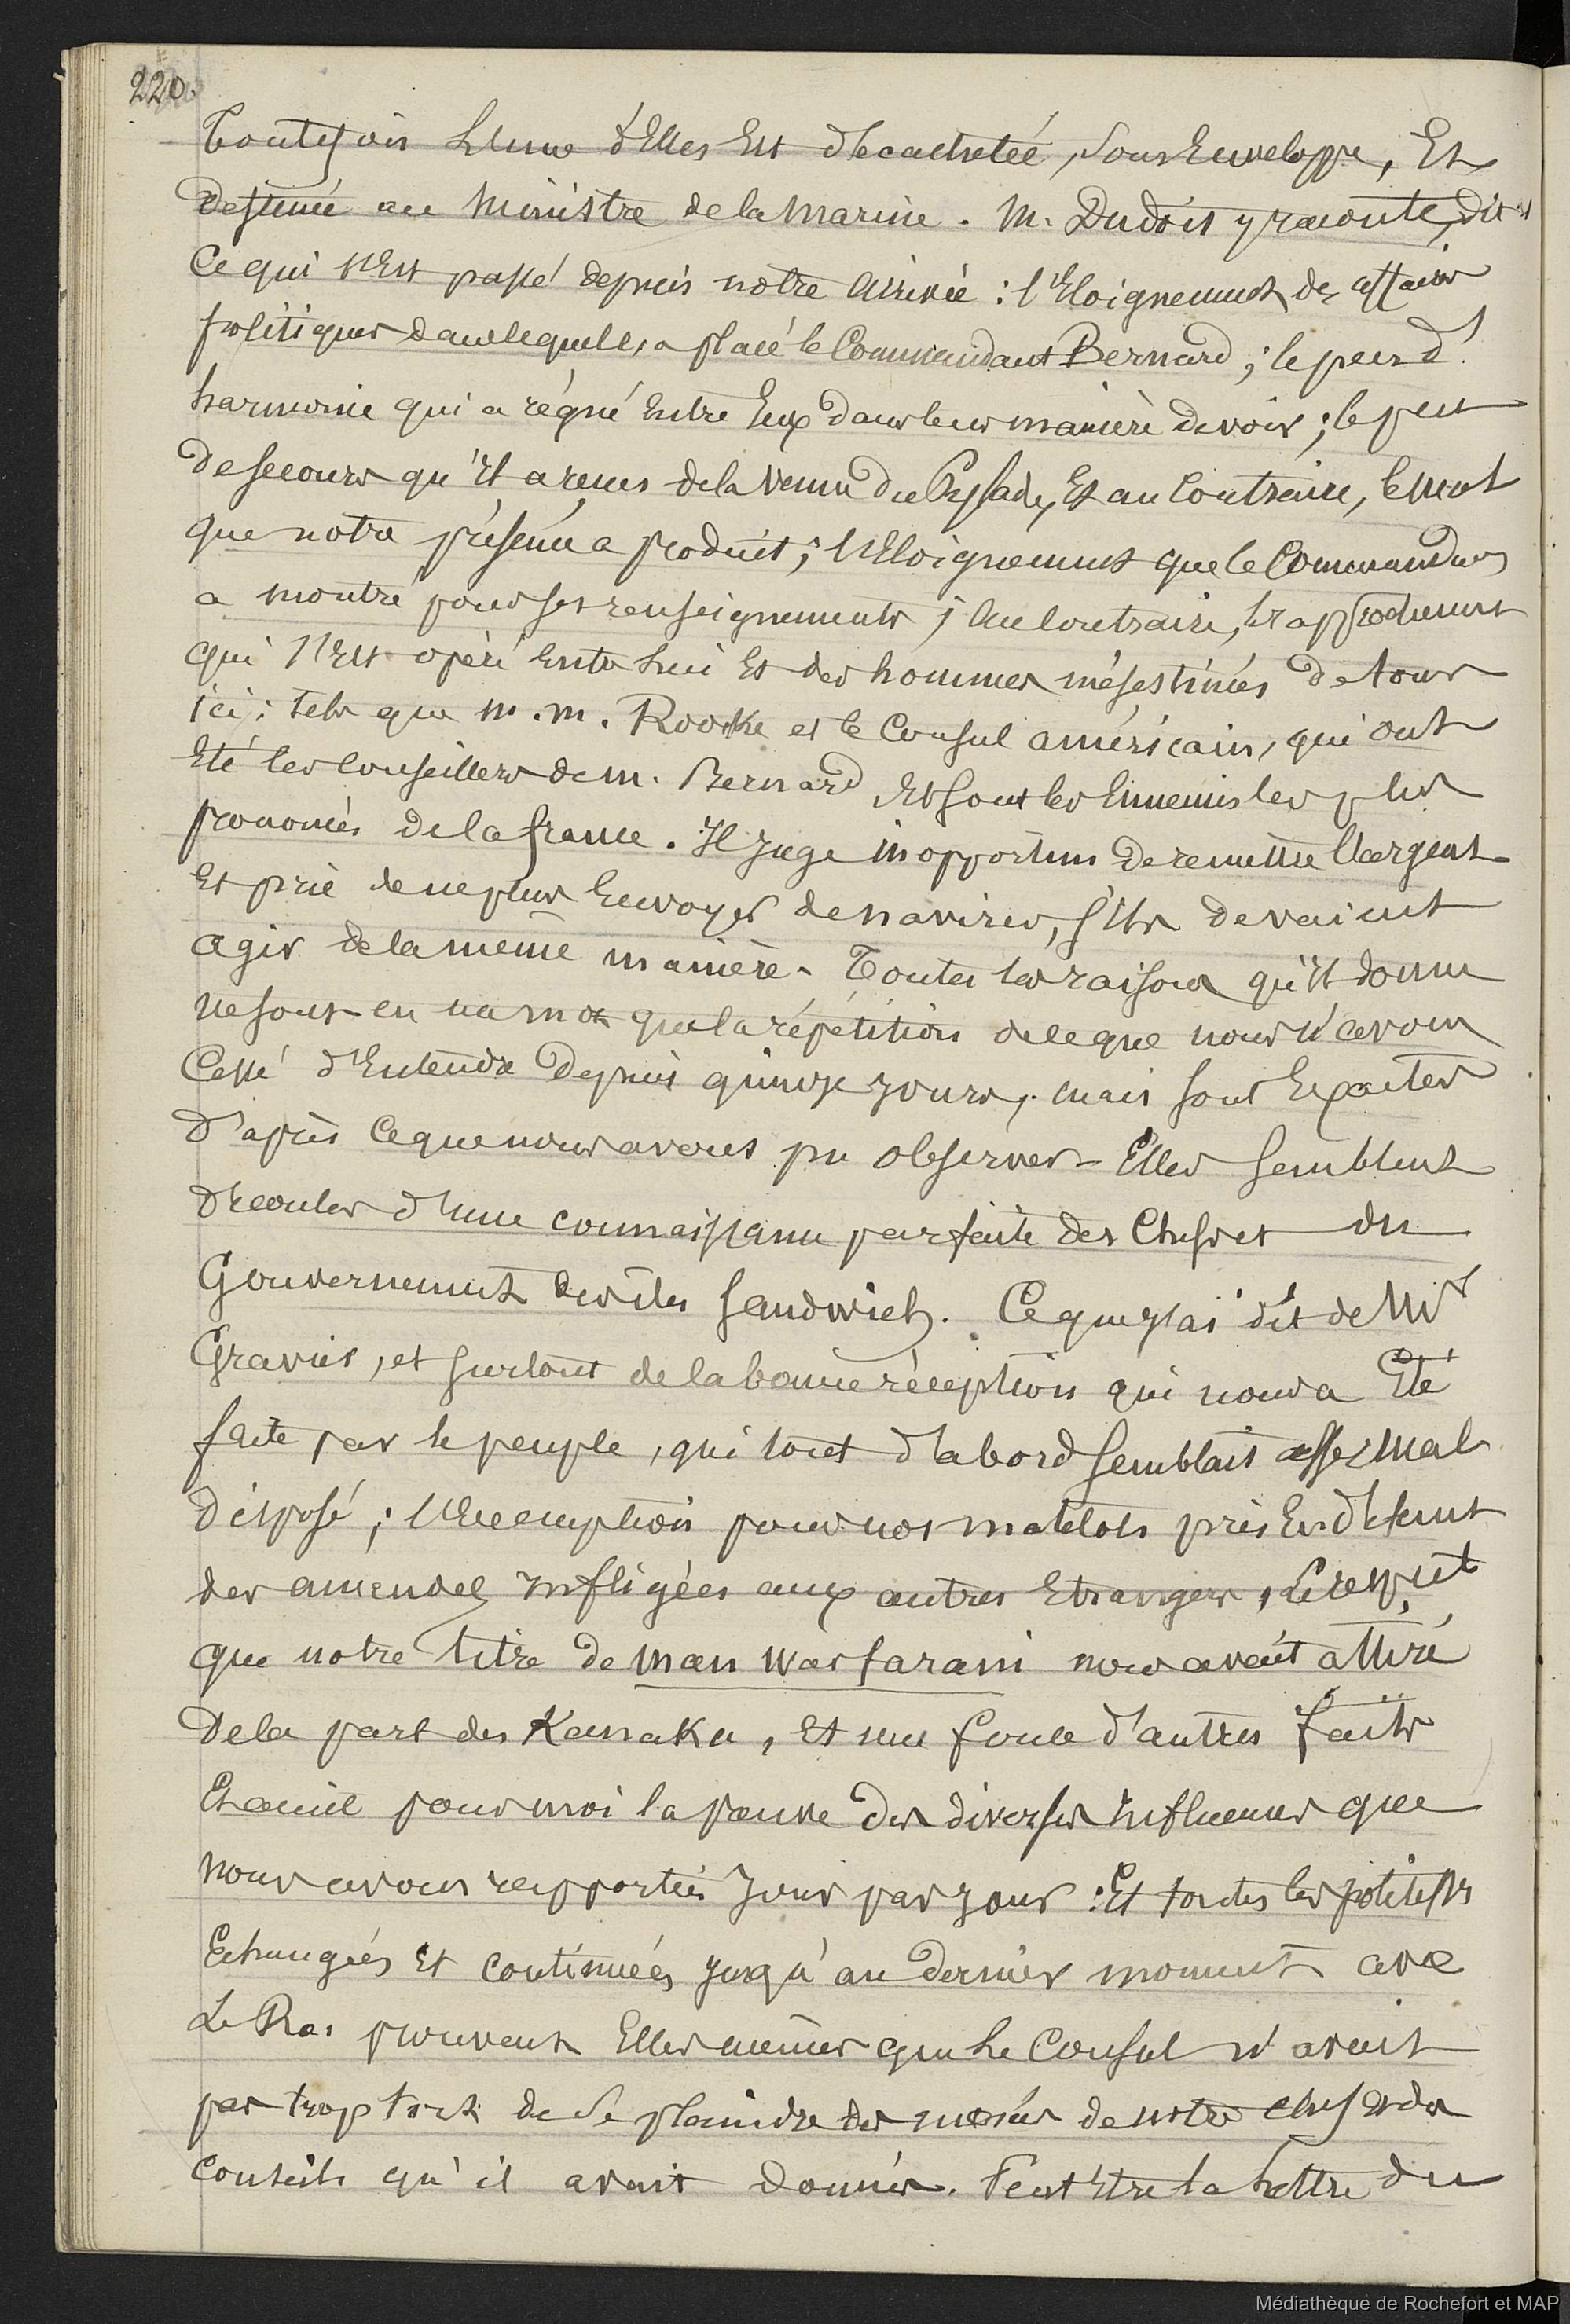 220.
Toutefois L'une d'Elles Est décachetée, sous Enveloppe, Et
destinée au Ministre de la Marine. M. Dudoit y raconte, dit
Ce qui s'Est passé depuis notre Arrivée : l'Eloignement des affaires
politiques dans lequel l'a placé le Commandant Bernard ; le peu d'
harmonie qui a régné Entre Eux dans leur manière de voir ; le peu
de secours qu'Il a reçus de la venue du Pylade, Et au Contraire, le mal
que notre présence a produit ; l'Eloignement que le Commandant
a montré pour ses renseignements ; Au Contraire, le rapprochement
qui s'Est opéré Entre Lui Et des hommes mésestimés de tous
ici : tels que M. M. Rooke et le Consul américain, qui ont
Eté les Conseillers de M. Bernard Et sont les Ennemis les plus
prononcés de la france. Il Juge inopportun de remettre l'Argent
Et prie de ne plus Envoyer de navires, s'Ils devaient
agir de la même manière. Toutes les raisons qu'Il donne
ne sont en un mot que la répétition de ce que nous n'avons
Cessé d'Entendre Depuis quinze Jours, mais sont Exactes
d'après Ce que nous avons pu observer. Elles semblent
découler d'une connaissance parfaite des Chefs et du
Gouvernement des îles Sandwich. Ce que j'ai dit de Mr
Gravier, et surtout de la bonne réception qui nous a Eté
faite par le peuple, qui tout d'abord semblait assez mal
disposé ; l'Exemption pour nos matelots pris En défaut
des amendes Infligées aux autres Etrangers, Le respect
que notre titre de man war farani nous avait attiré
De la part des Kanaka, Et une foule d'autres faits
Etablit pour moi la preuve des diverses Influences que
nous avons rapportées Jour par Jour : Et toutes les politesses
Echangées Et continuées jusqu'au dernier moment avec
Le Roi prouvent Elles mêmes que Le Consul n'avait
pas trop tort de se plaindre des menées de notre chef et des
Conseils qu'il avait donnés. Peut Etre la Lettre du
Médiathèque de Rochefort et MAP